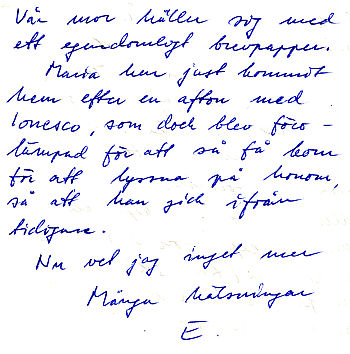 Vår mor håller sig med
ett egendomligt brevpapper.
Maria har just kommit
hem efter en afton med
Ionesco, som dock blev föro-
lämpad för att så få kom
för att lyssna på honom,
så att han gick ifrån
tidigare.
Nu vet jag inget mer
Många hälsningar
E.